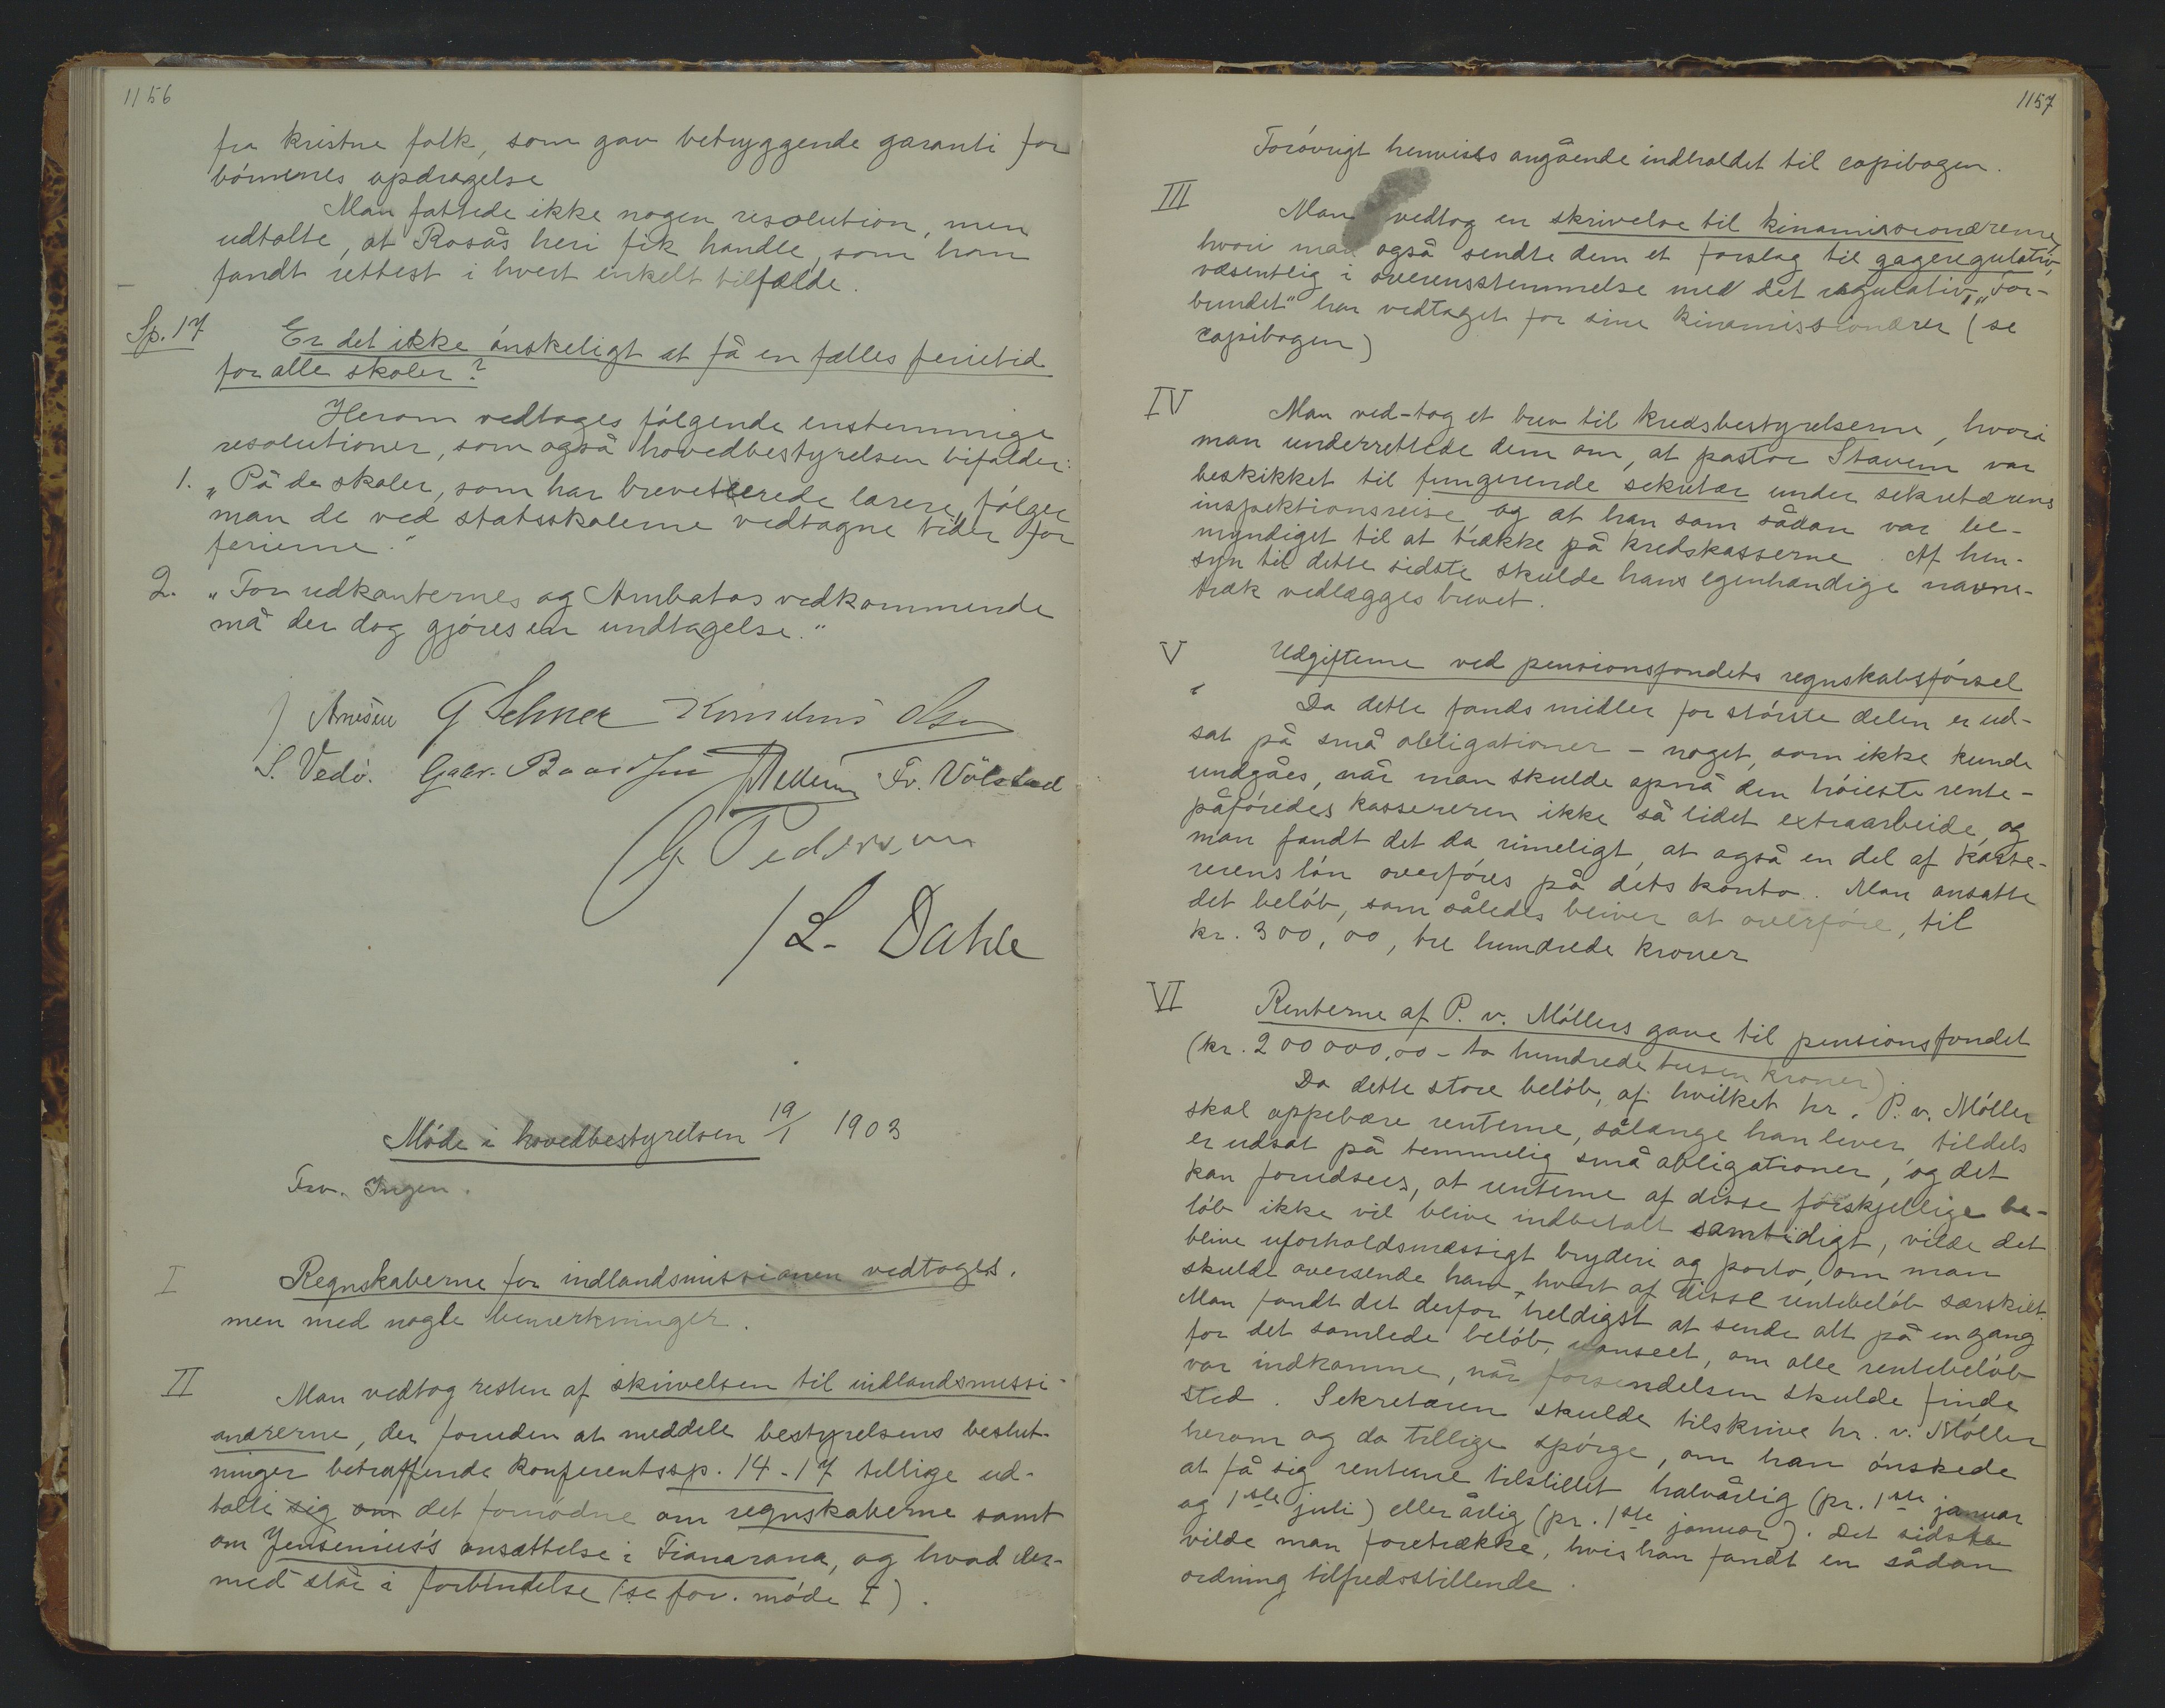 1156
fra kristne folk, som gav betryggende garanti for
börnenes opdragelse
Man fattede ikke nogen resolution, men
udtalte, at Rosås heri fik handle, som han
fandt rettest i hvert enkelt tilfælde.
Sp. 17 Er det ikke ónskeligt at få en fælles ferietid
for alle skoler?
Herom vedtoges fólgende enstemmige
resolutioner, som også hovedbestyrelsen bifalder:
1. "På de skoler, som har brevetterede lærere, fólger
man de ved statsskolerne vedtagne tider for
ferierne."
2. "For udkanternes og Ambatos vedkommende
må der dog gjóres en undtagelse."
J Arnesen G Schner Kornelius Olsen
S. Vedö. Gabr. Baardsen Fr. Völstad
G Pedersen
/ L. Dahle
Móde i hovedbestyrelsen 19/1 1903
Frv. Ingen.
I Regnskaberne for indlandsmissionen vedtoges.
men med nogle bemerkninger.
II Man vedtog resten af skrivelsen til indlandsmissi-
onærerne, der foruden at meddele bestyrelsens beslut-
ninger betræffende konferentssp. 14-17 tillige ud-
talte sig om det fornódne om regnskaberne samt
om Jensenius's ansættelse i Fianarana, og hvad der-
med står i forbindelse (se forr. móde I).
1157
Foróvrigt henvises angående indholdet til copibogen.
III Man vedtog en skrivelse til kinamissionærerne,
hvori man også sendte dem et forslag til gageregulativ,
væsentlig i overensstemmelse med det regulativ, "For-
bundet" har vedtaget for sine kinamissionærer (se
copibogen)
IV Man ved-tog et brev til kredsbestyrelserne, hvori
man underrettede dem om, at pastor Stavem var
beskikket til fungerende sekretær under sekretærens
inspektionsreise og at han som sådan var be-
myndiget til at trække på kredskasserne. Af hen-
syn til dette sidste skulde hans egenhændige navne-
træk vedlægges brevet.
V Udgifterne ved pensionsfondets regnskabsfórsel
Da dette fonds midler for stórste delen er ud-
sat på små obligationer - noget, som ikke kunde
undgåes, når man skulde opnå den hóieste rente -
påfóredes kassereren ikke så lidet extraarbeide, og
man fandt det da rimeligt, at også en del af kasse-
rerens lón overfóres på dets konto. Man ansatte
det belób, som således bliver at overfóre, til
kr. 300,00, tre hundrede kroner
VI Renterne af P. v. Móllers gave til pensionsfondet
(kr. 200000,00 - to hundrede tusen kroner)
Da dette store belób, af hvilket hr. P. v. Móller
skal oppebære renterne, sålænge han lever, tildels
er udsat på temmelig små obligationer, og det
kan forudsees, at renterne af disse forskjellige be-
lób ikke vil blive indbetalt samtidigt, vilde det
blive uforholdsmæssigt bryderi og porto, om man
skulde oversende ham hvert af disse rentebelób særskilt.
Man fandt det derfor heldigst at sende alt på en gang
for det samlede belób, uanseet, om alle rentebelób
var indkomne, når forsendelsen skulde finde
sted. Sekretæren skulde tilskrive hr. v. Móller
herom og da tillige spórge, om han ónskede
at få sig renterne tilstillet halvårlig (pr. 1ste januar
og 1ste juli) eller årlig (pr. 1ste januar). Det sidste
vilde man foretrække, hvis han fandt en sådan
ordning tilfredsstillende.